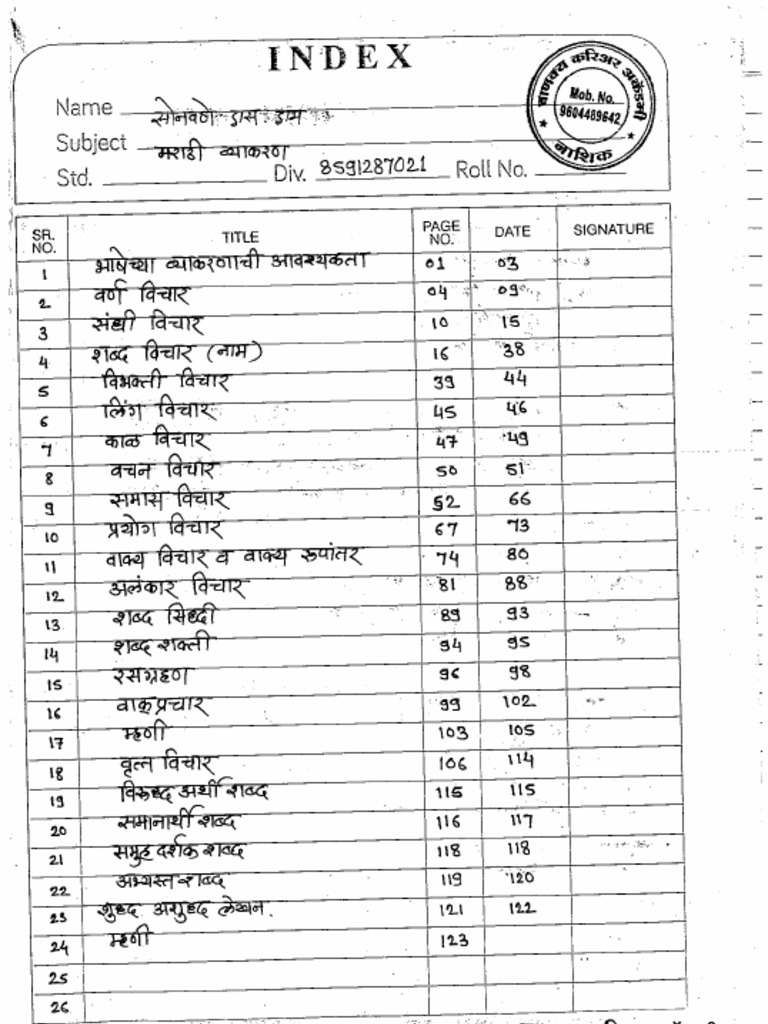 INDEX
चाणक्य करिअर अकॅडमी
Mob. No.
9604489642
नाशिक
Name सोनवणे
Subject मराठी व्याकरण
Std. Div. 8591287021 Roll No.
SR. NO. TITLE PAGE NO. DATE SIGNATURE
1 भाषेच्या व्याकरणाची आवश्यकता 01 03
2 वर्ण विचार 04 09
3 संधी विचार 10 15
4 शब्द विचार (नाम) 16 38
5 विभक्ती विचार 39 44
6 लिंग विचार 45 46
7 काळ विचार 47 49
8 वचन विचार 50 51
9 समास विचार 52 66
10 प्रयोग विचार 67 73
11 वाक्य विचार व वाक्य रुपांतर 74 80
12 अलंकार विचार 81 88
13 शब्द सिध्दी 89 93
14 शब्द शक्ती 94 95
15 रसग्रहण 96 98
16 वाक्प्रचार 99 102
17 म्हणी 103 105
18 वृत्त विचार 106 114
19 विरुध्द अर्थी शब्द 115 115
20 समानार्थी शब्द 116 117
21 समुह दर्शक शब्द 118 118
22 अभ्यस्त शब्द 119 120
23 शुध्द अशुध्द लेखन. 121 122
24 म्हणी 123
25
26